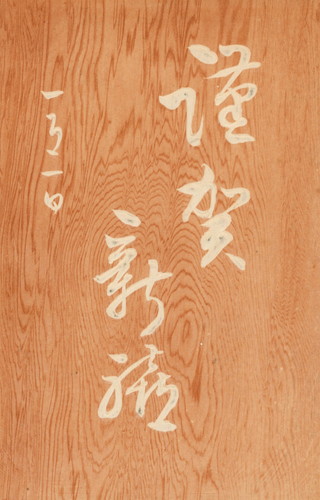 謹賀
新禧
一月一日